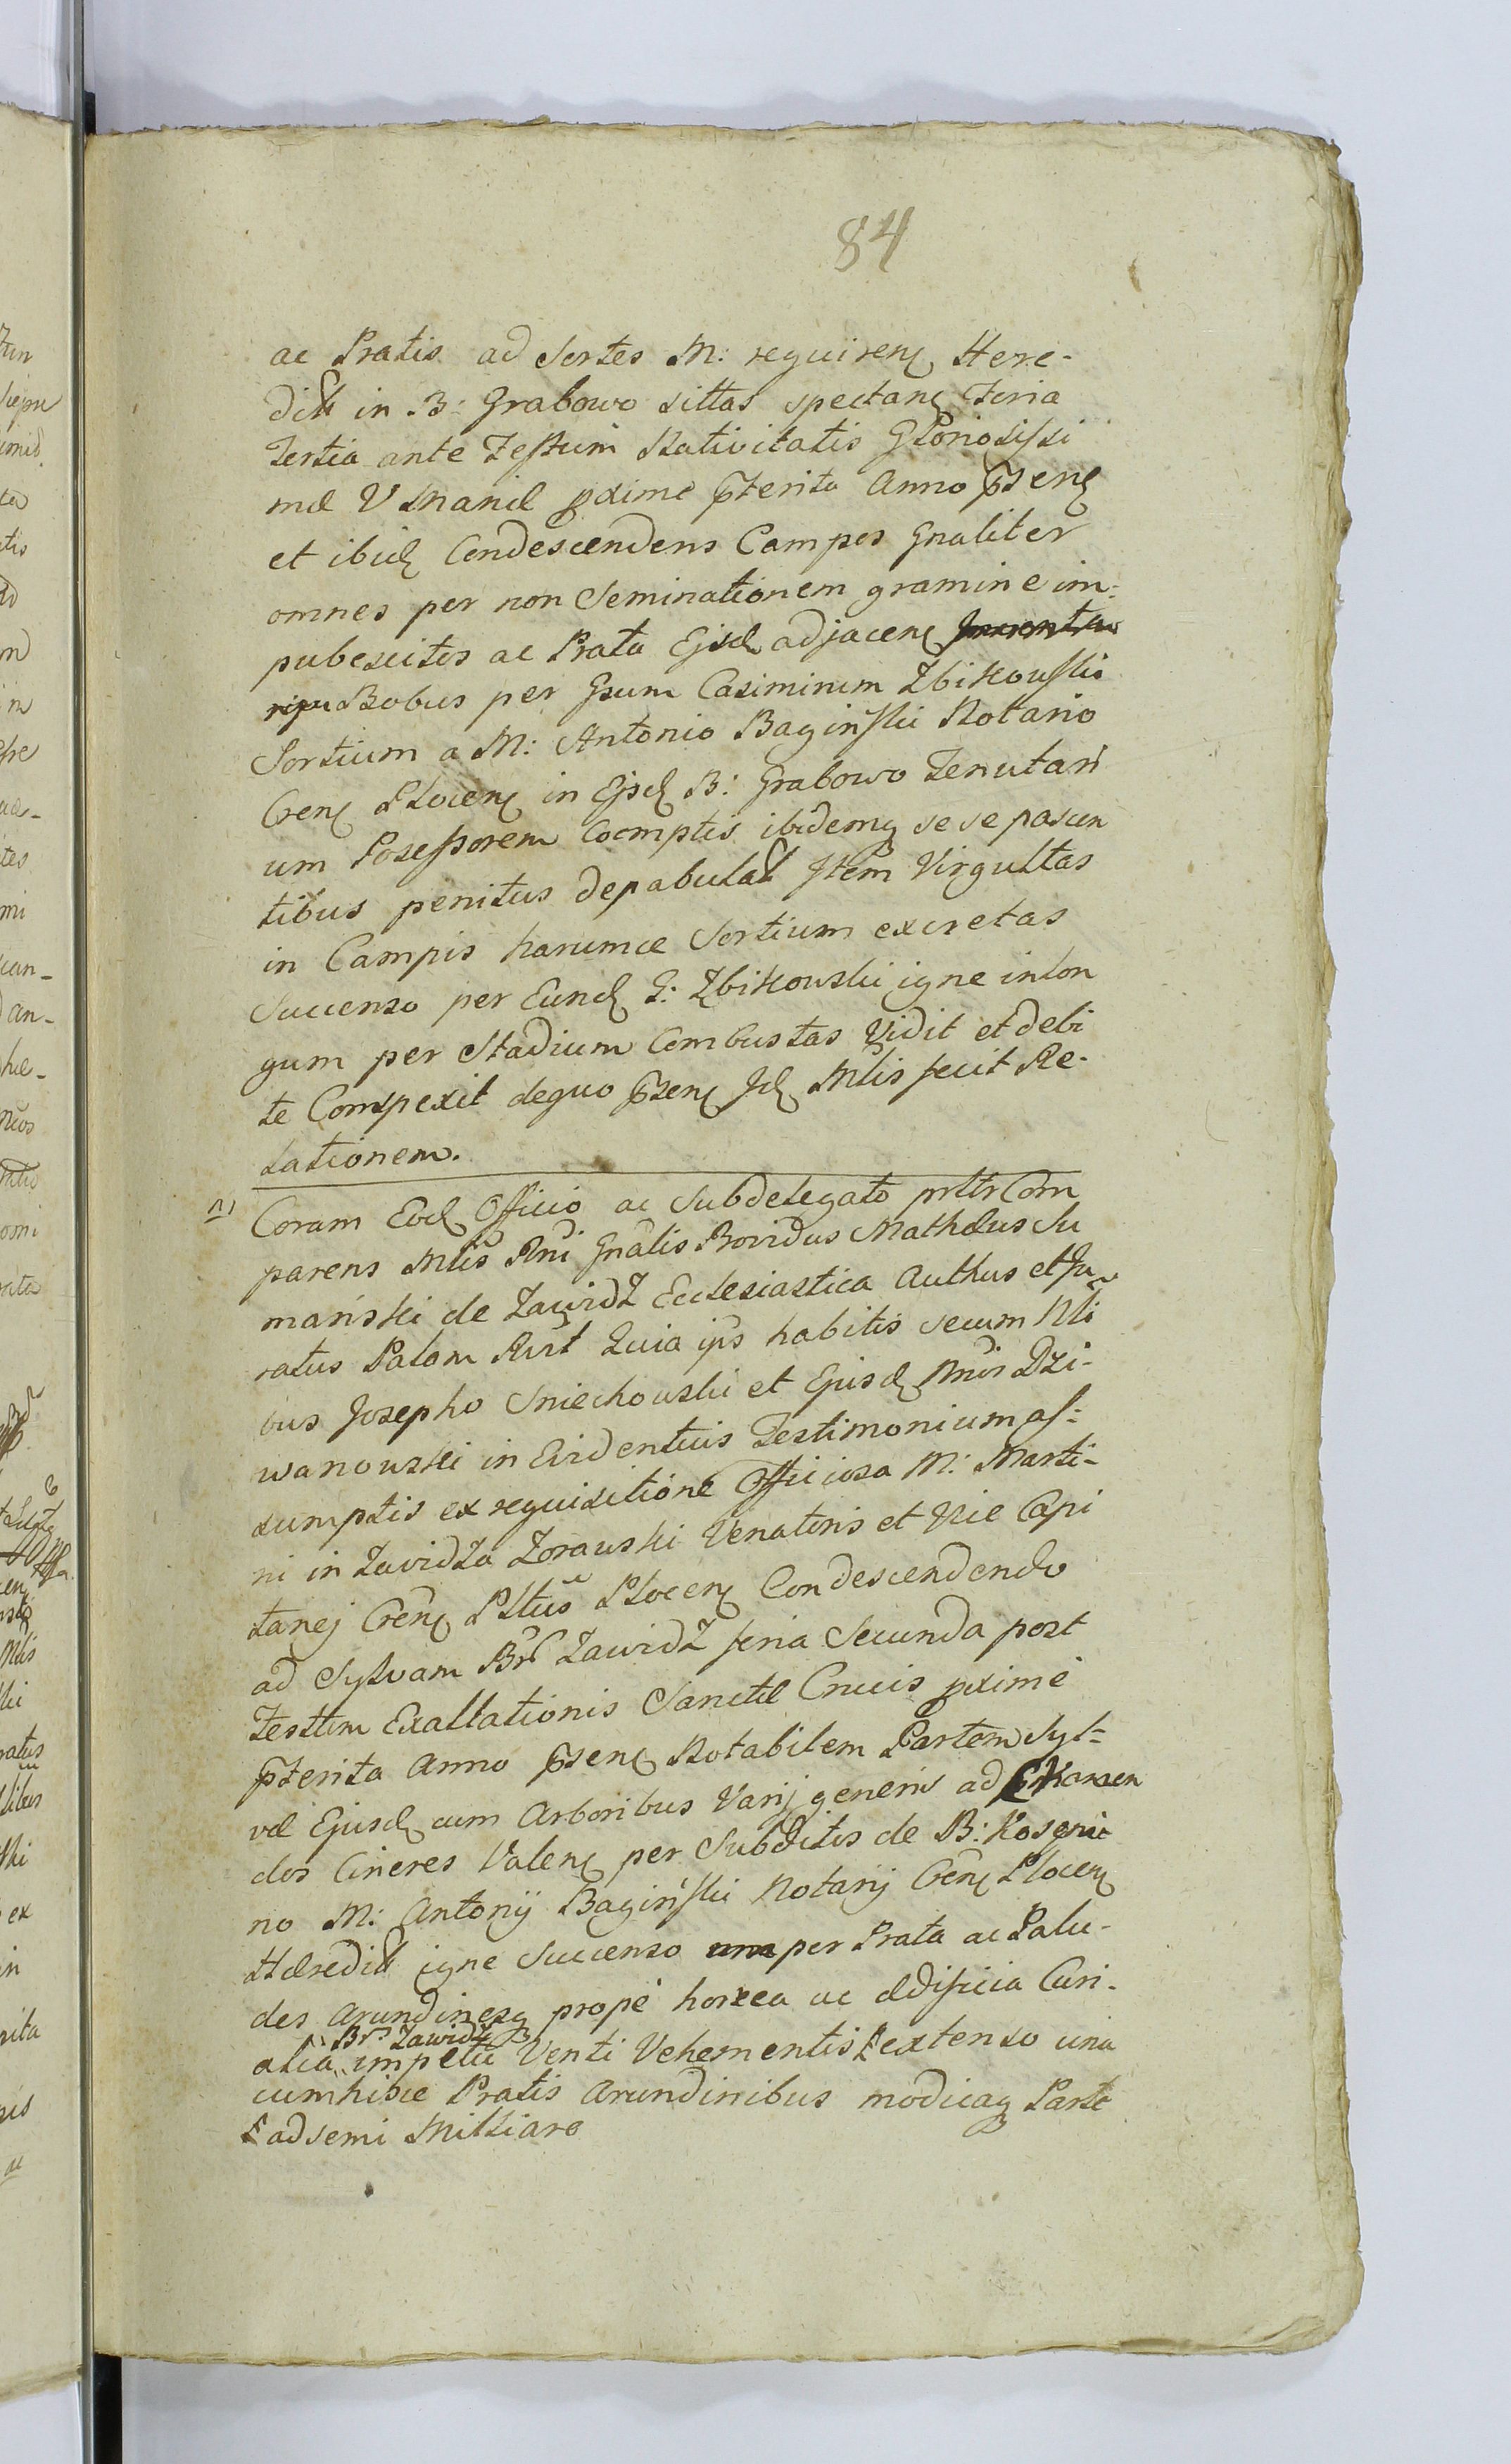 84
ac Pratis ad Sortes M: requiren Here-
dit in B: Grabowo sittas spectan Feria
Tertia ante Festum Nativitatis Gloriosissi
mæ V Mariæ pxime pterita Anno psen
et ibid Condescendens Campos Gnaliter
omnes per non Seminationem gramine im-
pubescitos ac Prata Ejsd adjacen
Bobus per Gsum Casimirum Zbikowski
Sortium a M: Antonio Bagiński Notario
Cren Plocen in Ejsd B: Grabowo Tenutari
um Posessorem Coemptis ibidemq se se pascen
tibus penitus depabulat Item Virgultas
in Campis harumce Sortium excretas
Succenso per Eund G: Zbikowski igne in lon
gum per Stadium Combustas Vidit et debi
te Conspexit de quo psen Id Mlis fecit Re-
lationem.
Coram Eod Officio ac Subdelegato prttr Com
parens Mlis Rni Gnalis Providus Mathæus Su
mański de Zawidz Ecclesiastica Authus et Ju
ratus Palam Rvt Quia ips habitis secum Nli
bus Josepho Sniechowski et Ejusd Nnis Dzi-
wanowski in Evidentius Testimonium as-
sumptis ex requisitione Officiosa M: Marti-
ni in Zawidza Zorawski Venatoris et Vice Capi
tanej Cren Pltus Plocen Condescendendo
ad Sylvam Br Zawidz feria Secunda post
Festum Exaltationis Sanctæ Crucis pxime
pterita Anno psen Notabilem Partem Syl-
væ Ejusd cum Arboribus Varij generis ad Exkamen
dos Cineres Valen per Subditos de B:
no M: Antonij Bagiński Notarij Cren Plocen
Hæredit igne Succenso per Prata ac Palu-
des Arundinesq prope horrea ac ædificia Curi-
Br Zawidz
alia impetu Venti Vehementis extenso una
cum hisce Pratis Arundinibus modicaq Parte
ad semi Milliare